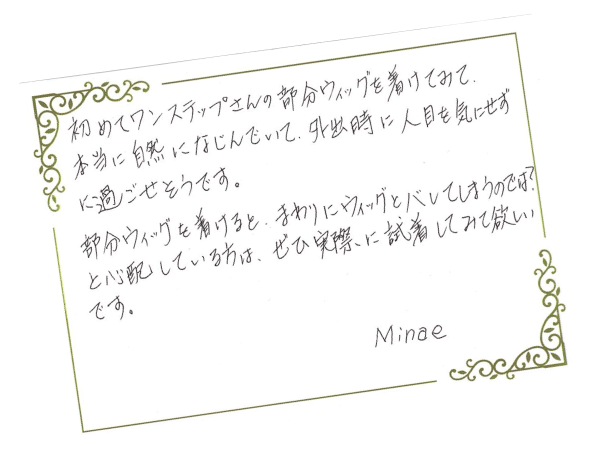 初めてワンステップさんの部分ウィッグを着けてみて、
本当に自然になじんでいて、外出時に人目を気にせず
に過ごせそうです。
部分ウィッグを着けると、まわりにウィッグとバレてしまうのでは?
と心配している方は、ぜひ実際に試着してみて欲しい
です。
Minae